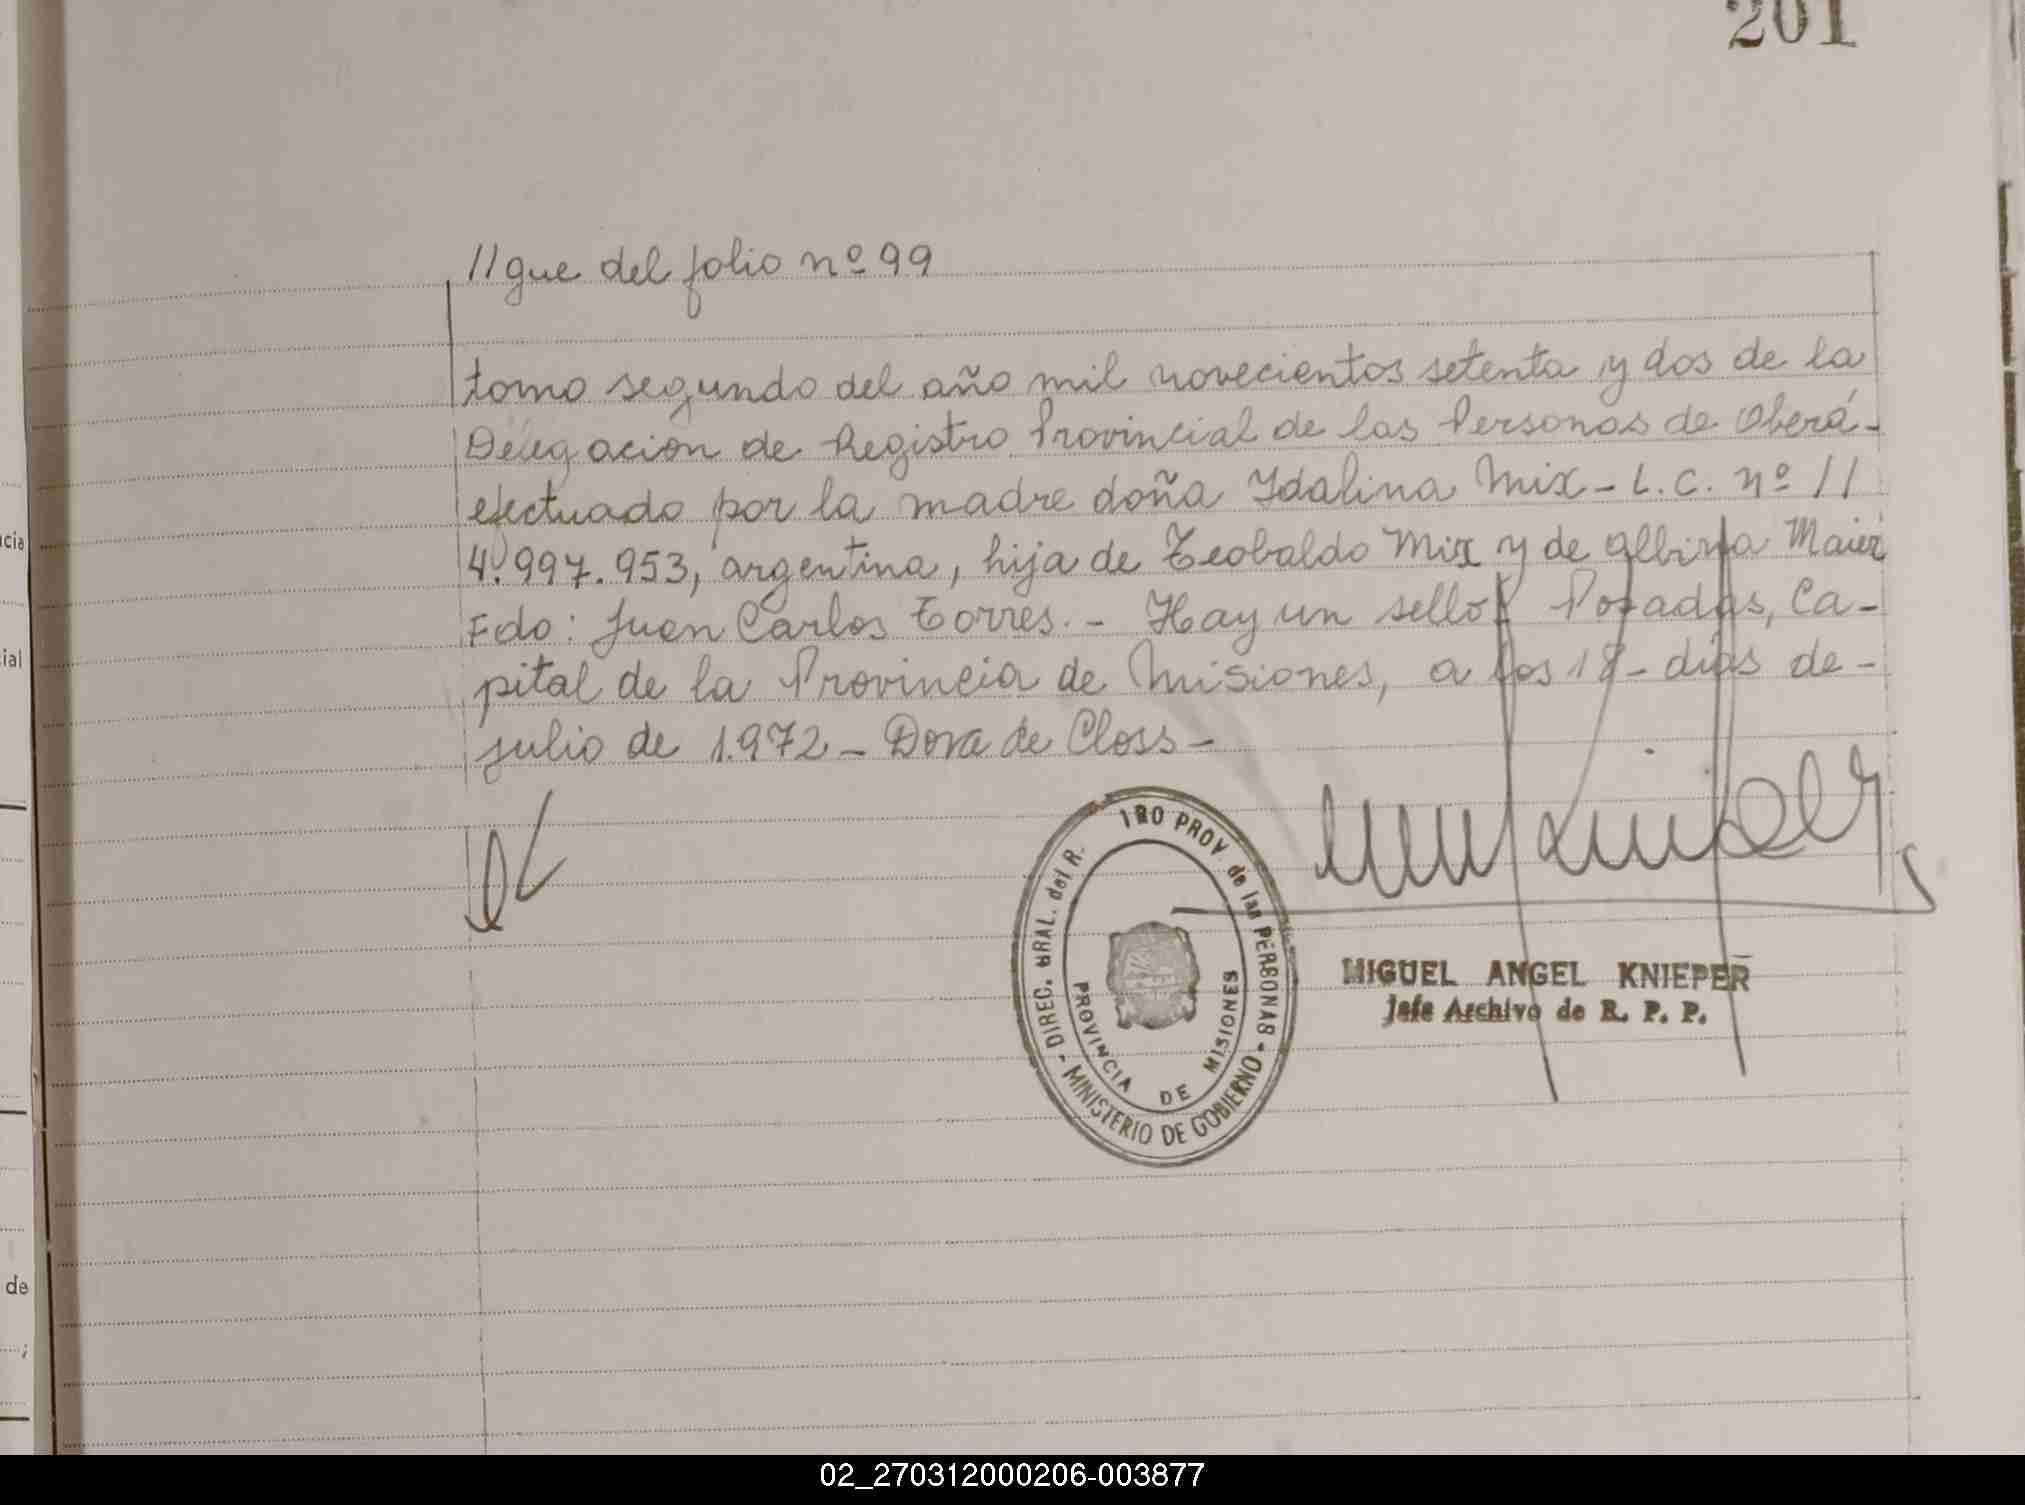 201
//gue del folio nº 99
tomo segundo del año mil novecientos setenta y dos de la
Delegacion de Registro Provincial de las Personas de Oberá-
efectuado por la madre doña Idalina Mix - L.C. nº //
4.997.953, argentina, hija de Teobaldo Mix y de Albina Maier
Fdo: Juan Carlos Torres. - Hay un sello: Posadas, Ca-
pital de la Provincia de Misiones, a los 18 - días de -
julio de 1.972 - Dora de Closs -
DIREC. GRAL. del R. PROV. de las PERSONAS - MINISTERIO DE GOBIERNO -
PROVINCIA DE MISIONES
MIGUEL ANGEL KNIEPER
Jefe Archivo de R. P. P.
cia
ial
de
;
02_270312000206-003877